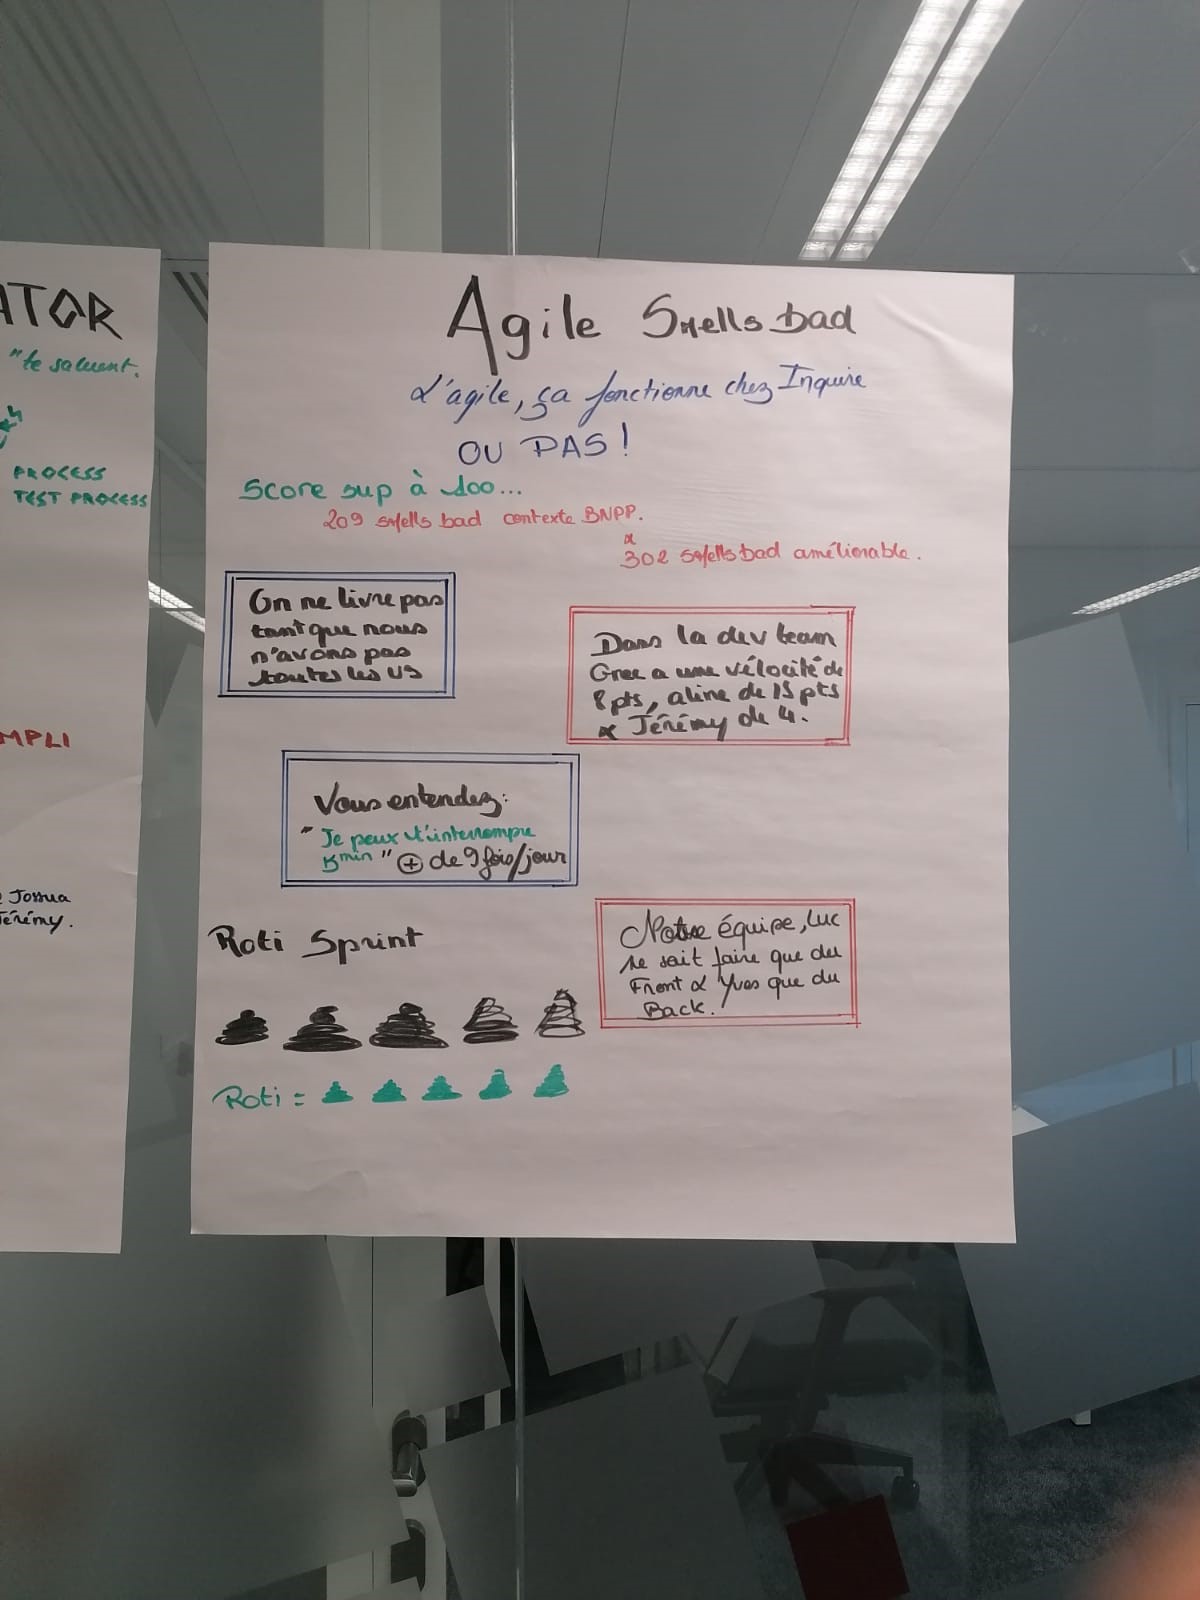 ATOR
"te saluent.
PROCESS
TEST PROCESS
MPLI
Jossua
Jérémy.
Agile Smells bad
L'agile, ça fonctionne chez Inquire
OU PAS !
Score sup à 100...
209 smells bad contexte BNPP.
&
302 smells bad améliorable.
On ne livre pas
tant que nous
n'avons pas
toutes les US
Dans la dev team
Greg a une vélocité de
8 pts, aline de 15 pts
& Jérémy de 4.
Vous entendez:
"Je peux t'interrompre
5min" + de 9 fois/jour
Roti Sprint
Notre équipe, Luc
ne sait faire que du
Front & Yves que du
Back.
Roti =